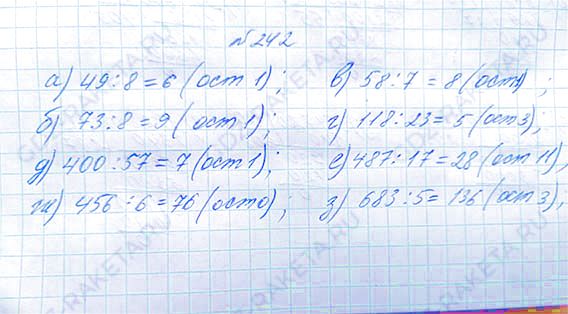 № 242
а) 49 : 8 = 6 (ост 1); в) 58 : 7 = 8 (ост 1);
б) 73 : 8 = 9 (ост 1); г) 118 : 23 = 5 (ост 3);
д) 400 : 57 = 7 (ост 1); е) 487 : 17 = 28 (ост 11),
ж) 456 : 6 = 76 (ост 0); з) 683 : 5 = 136 (ост 3),